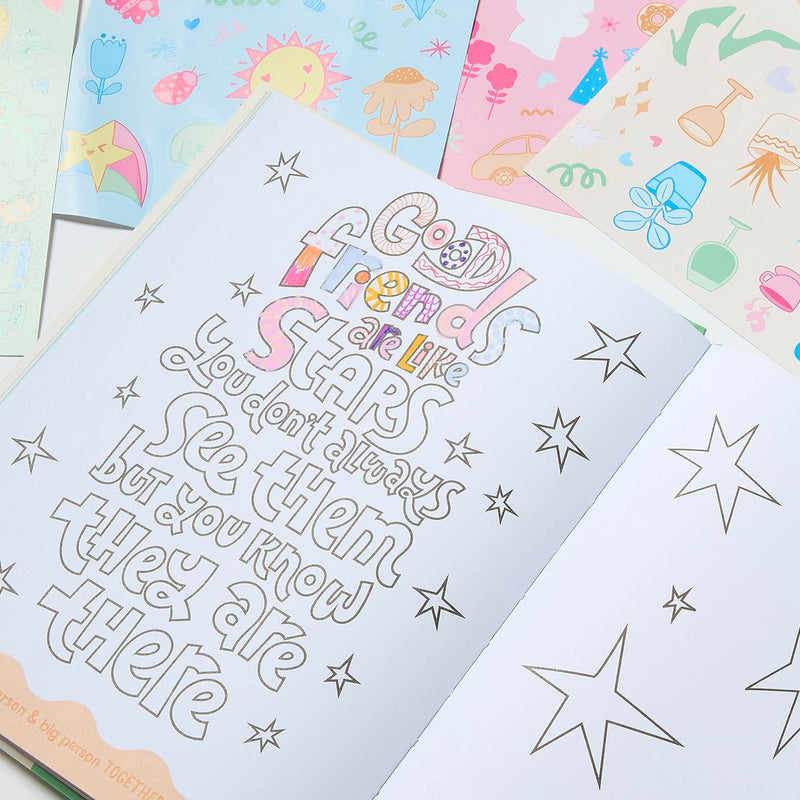 GOOD
friends
are Like
STARS
you don't always
see them
but you know
they are
there
erson & big person TOGETHER